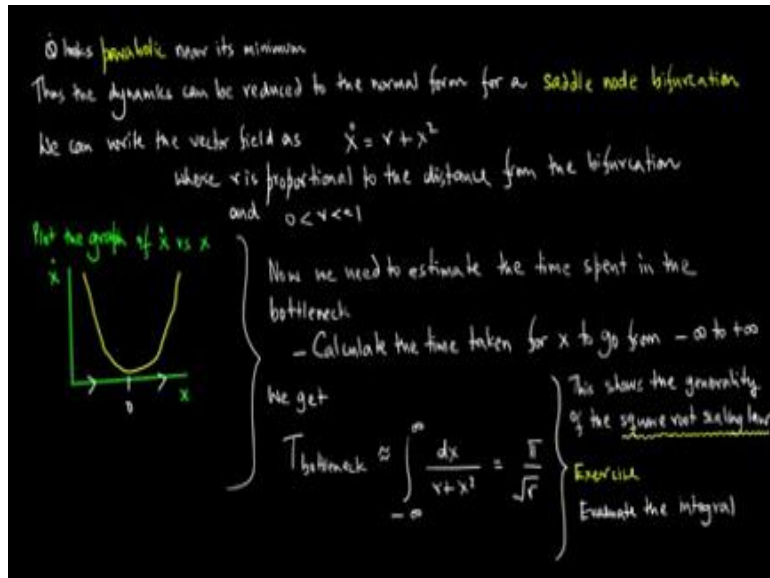 θ̇ looks parabolic near its minimum
Thus the dynamics can be reduced to the normal form for a saddle node bifurcation
We can write the vector field as ẋ = r + x²
where r is proportional to the distance from the bifurcation
and 0 < r << 1
Plot the graph of ẋ vs x
ẋ
0
x
Now we need to estimate the time spent in the
bottleneck
- Calculate the time taken for x to go from - ∞ to +∞
We get
T bottleneck ≈ ∫_{-∞}^{∞} dx / (r + x²) = π / √r
This shows the generality
of the square root scaling law
Exercise
Evaluate the integral